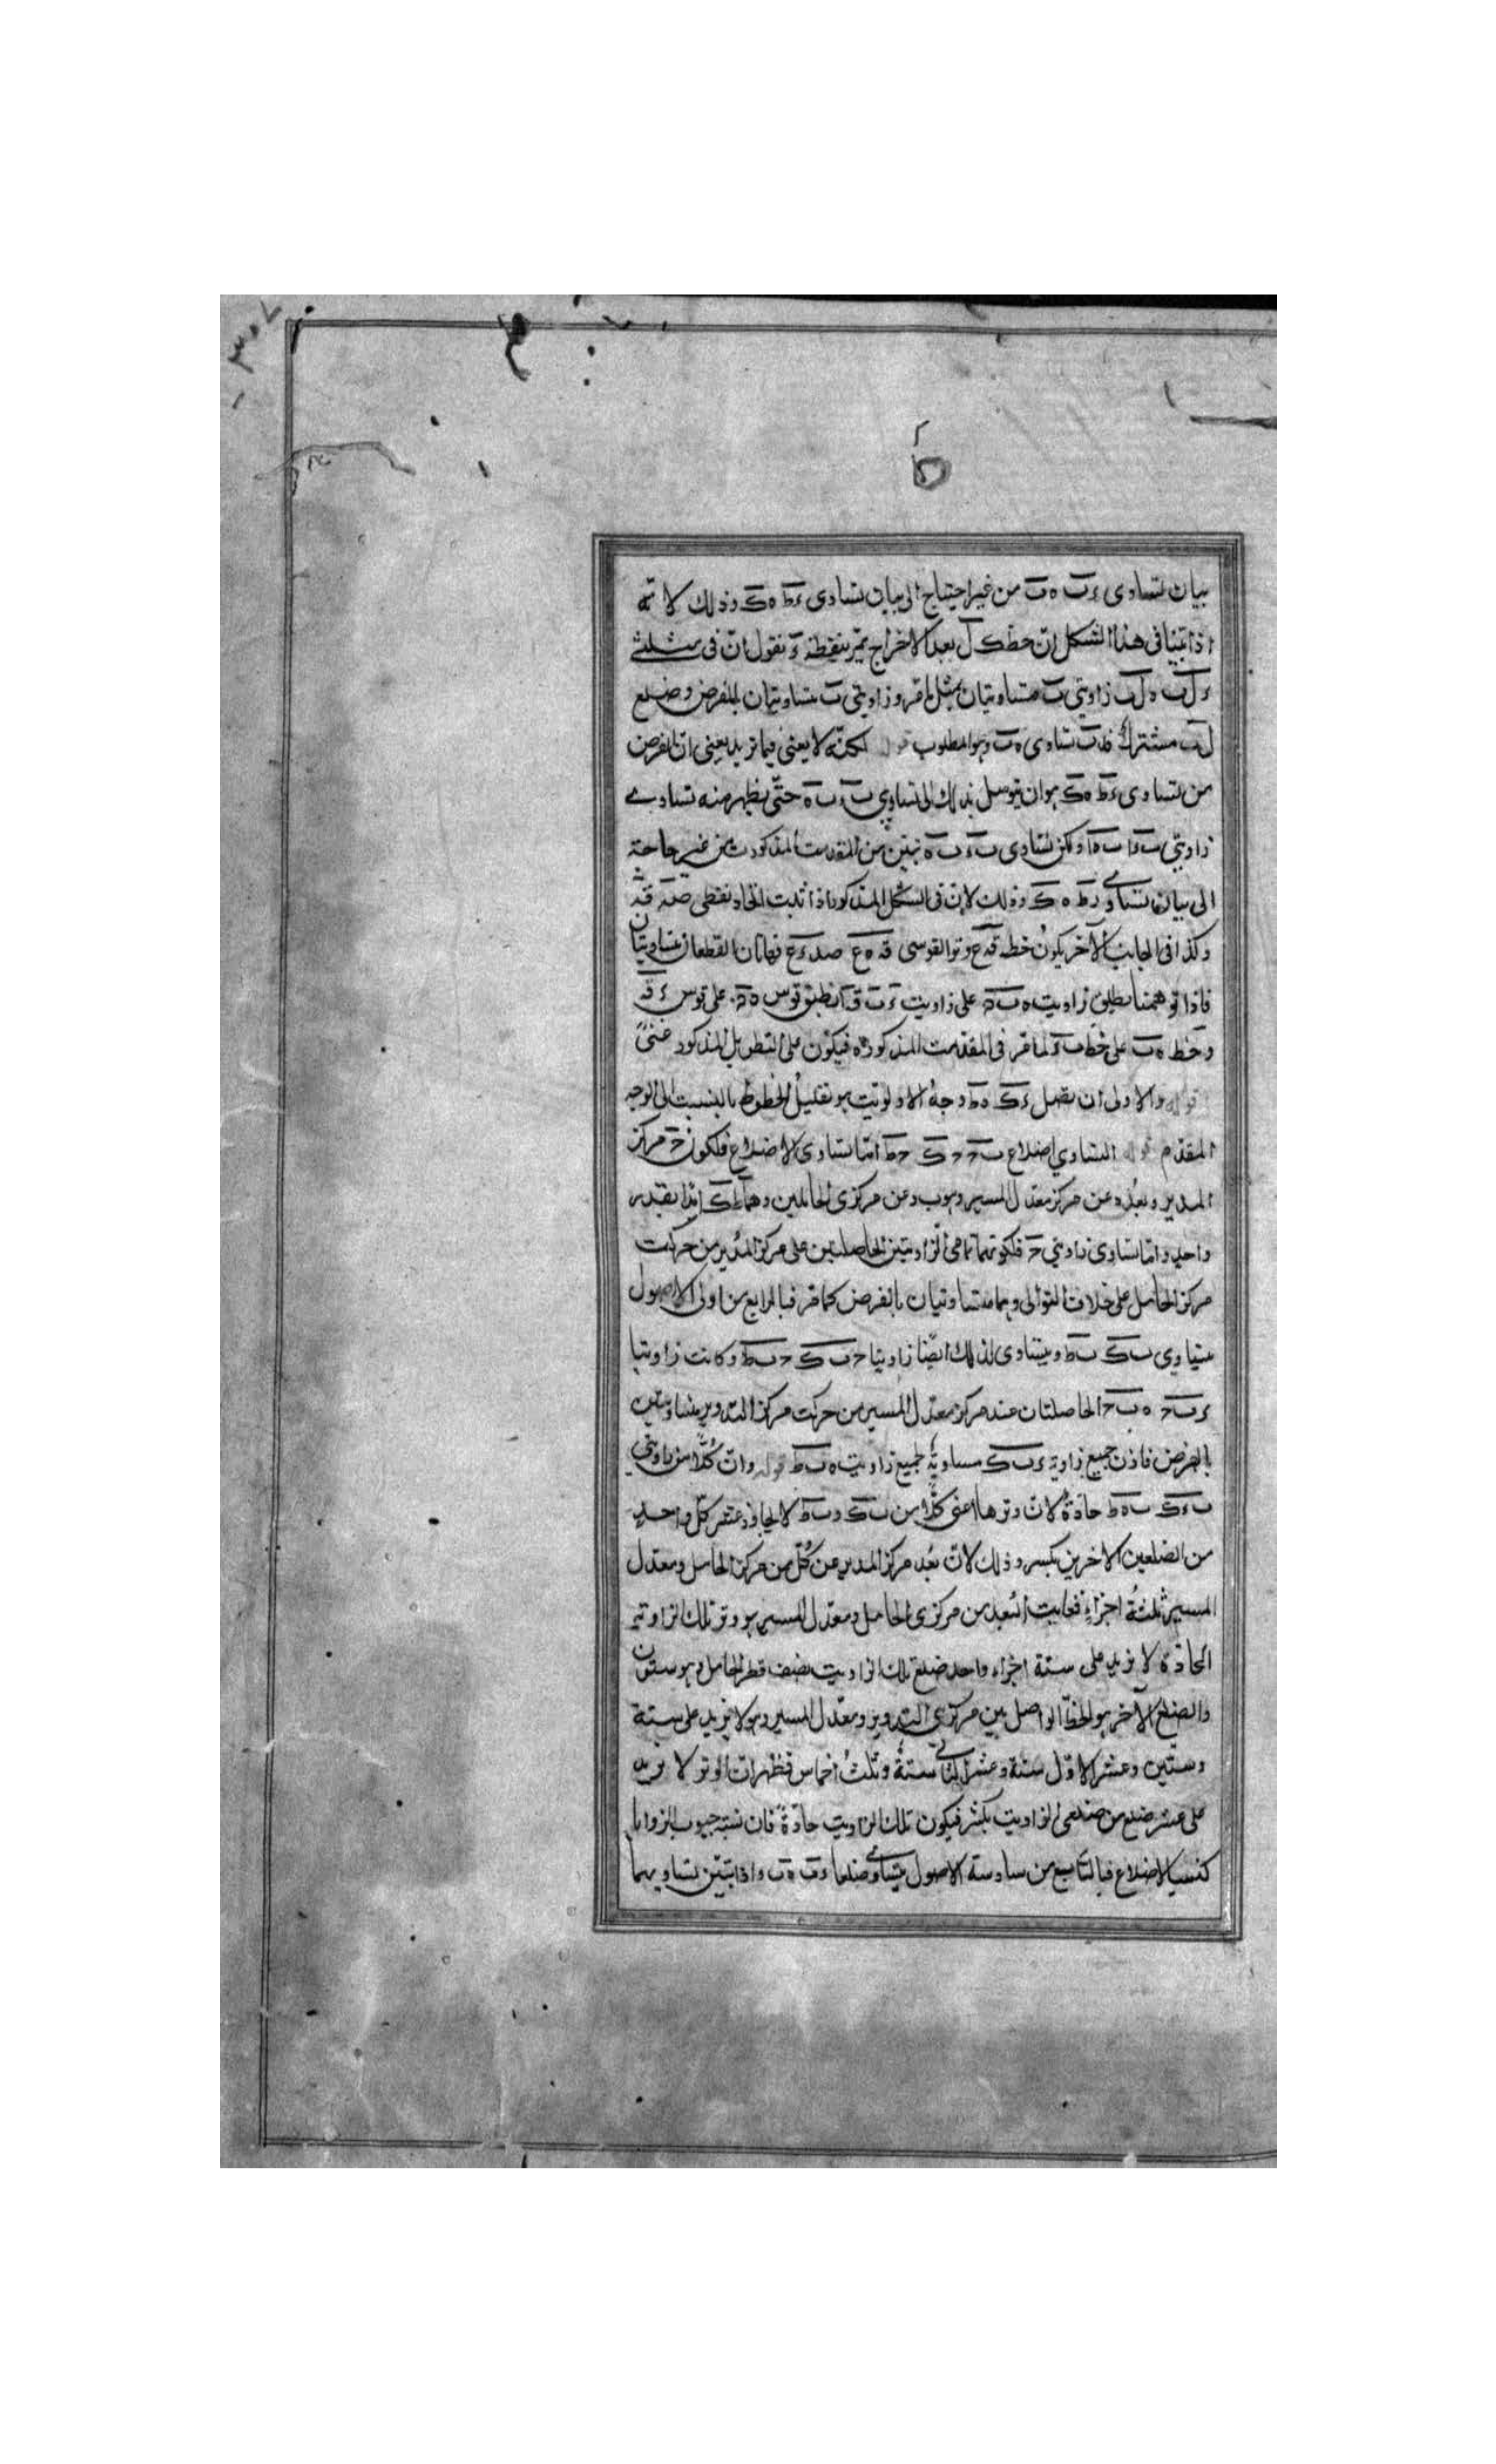 بيان تساوى ءب ه‍ب من غير احتياج الى بيان تساوى ءط ه‍ك وذلك لانه
اذا بينا فى هذا الشكل ان خط ك ل بعد الاخراج يمر بنقطة ء نقول ان فى مثلثى
ء ل ب ه ل ب زاويتى ب متساويتان بمثل ما مر و زاويتى ب متساويتان بالفرض وضلع
ل ب مشترك فءب تساوى ه‍ب وهو المطلوب قوله لكنه لا يعنى فيما تريد يعنى ان الغرض
من تساوى ءط ه‍ك هو ان يتوسل بذلك الى تساوى ب ء ب ه حتى يظهر منه تساوى
زاويتى ب ء ا ب ه ا ولكن تساوى ب ء ب ه تبين من المقدمة المذكورة من غير حاجة
الى بيان تساوى ء ط ه ك وذلك لان فى الشكل المذكور اذا ثبت اتحاد نقطتى
وكذا فى الجانب الآخر يكون خط وتر القوسى فهاتان القطعتان متساويتان
فاذا توهمنا تطبيق زاوية على زاوية انطبق قوس على قوس
وخط ه ب على خط ب ء لما مر فى المقدمة المذكورة فيكون على التطويل المذكور غنى
قوله والاولى ان نصل ء ك ه ط وجه الاولوية هو تقليل الخطوط بالنسبة الى الوجه
المقدم قوله لتساوى اضلاع ب ح ح ك ح ط اما تساوى الاضلاع فلكون ح مركز
المدير وبعده عن مركز معدل المسير وهو ب وعن مركزى الحاملين وهما ط ك ابدا بقدر
واحد واما تساوى زاويتى ح فلكونهما تمامى الزاويتين الحاصلتين على مركز المدير من حركة
مركز الحامل على خلاف التوالى وهما متساويتان بالفرض كما مر فبالرابع من اولى الاصول
يتساوى ب ك ب ط ويتساوى لذلك ايضا زاويتا ح ب ك ح ب ط وكانت زاويتا
ء ب ح ه ب ح الحاصلتان عند مركز معدل المسير من حركة مركز التدوير متساويتين
بالفرض فاذن جميع زاوية ء ب ك مساوية لجميع زاوية ه ب ط قوله وان كلا من زاويتى
ب ء ك ب ه ط حادة لان وترها اعنى كلا من ب ك و ب ط لا يجاوز عشر كل واحد
من الضلعين الآخرين بكسر وذلك لان بعد مركز المدير عن كل من مركز الحامل ومعدل
المسير ثلثة اجزاء فغاية البعد من مركزى الحامل ومعدل المسير هو وتر تلك الزاوية
الحادة لا يزيد على ستة اجزاء واحد ضلع تلك الزاوية نصف قطر الحامل وهو ستون
والضلع الآخر هو الخط الواصل بين مركزى التدوير ومعدل المسير وهو لا يزيد على ستة
وستين وعشر الاول ستة وعشر الثانى ستة وثلث اخماس فظهر ان الوتر لا يزيد
على عشر ضلع من ضلعى الزاوية بكسر فيكون تلك الزاوية حادة فان نسبة جيوب الزوايا
كنسبة الاضلاع فبالتاسع من سادسة الاصول يتساوى ضلعا ء ب ه ب واذا تبين تساويهما